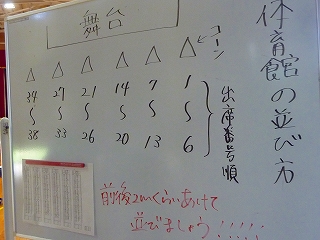 体育館の並び方
舞台
コーン
△ △ △ △ △ △
34 27 21 14 7 1
〜 〜 〜 〜 〜 〜
38 33 26 20 13 6
出席番号順
前後2mくらいあけて
並びましょう!!!!!